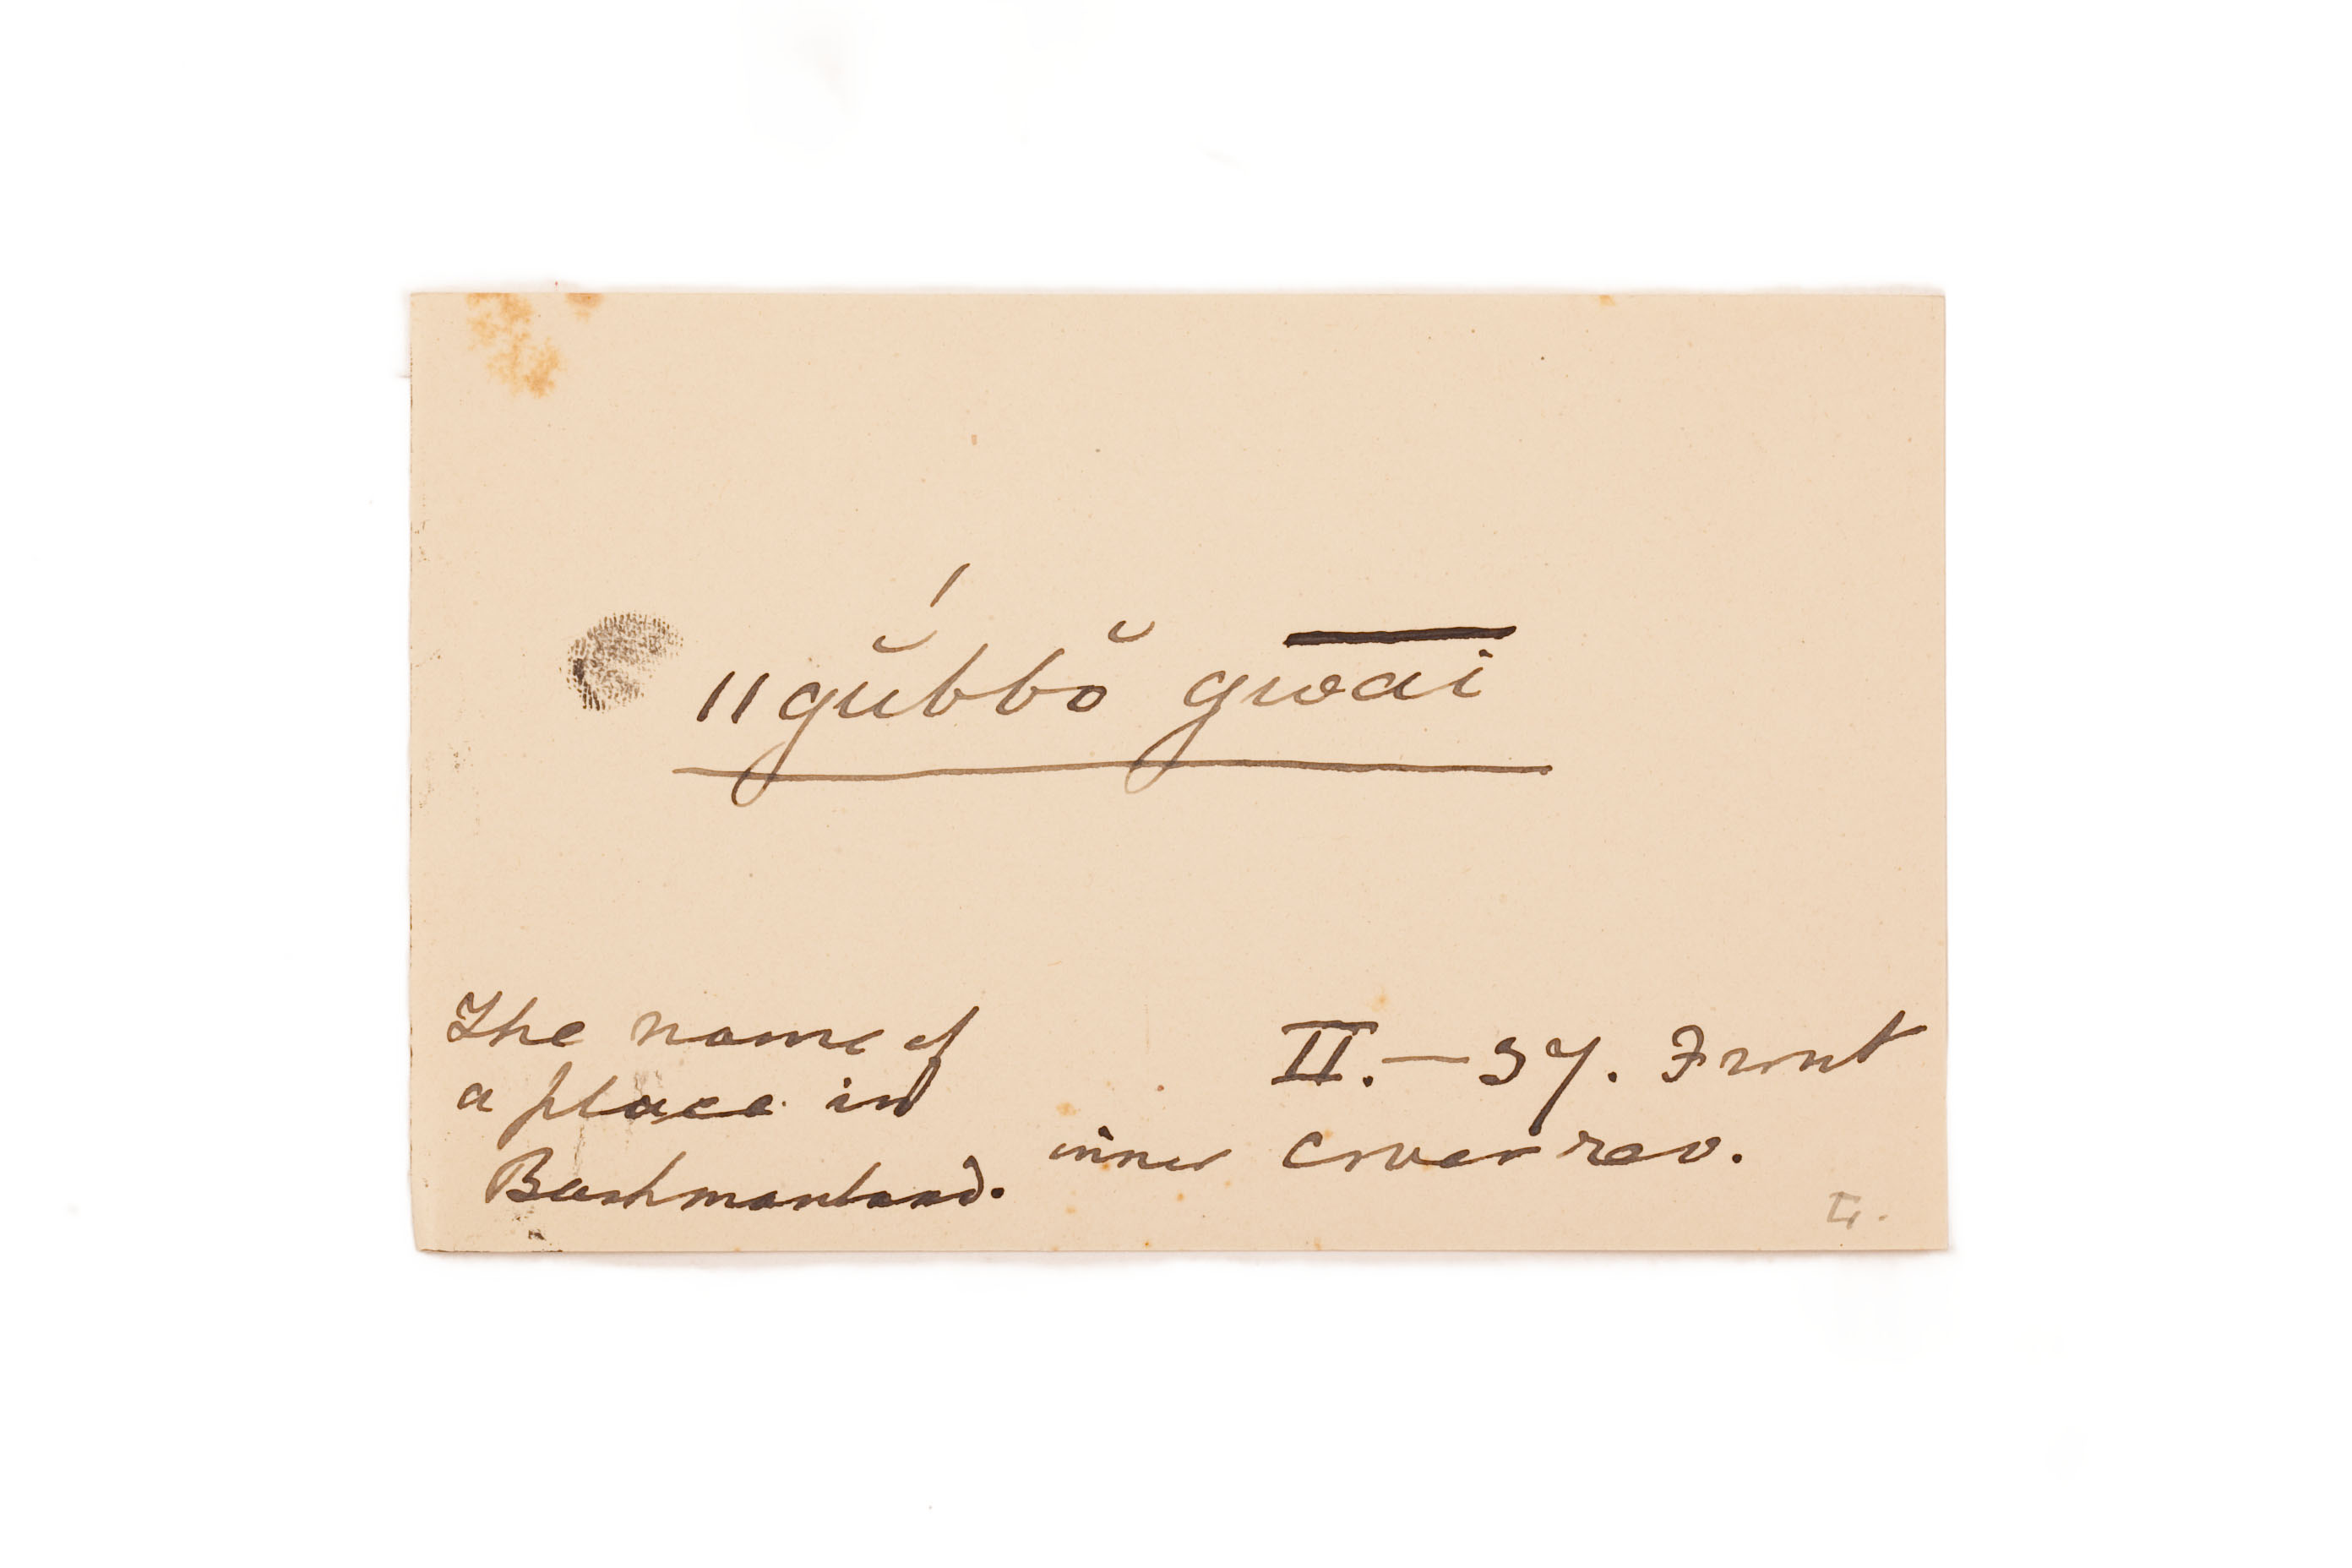 ǁgŭ́bbŏ gw͞ai
The name of
a place in
Bushmanland.
II.—37. Front
inner cover rev.